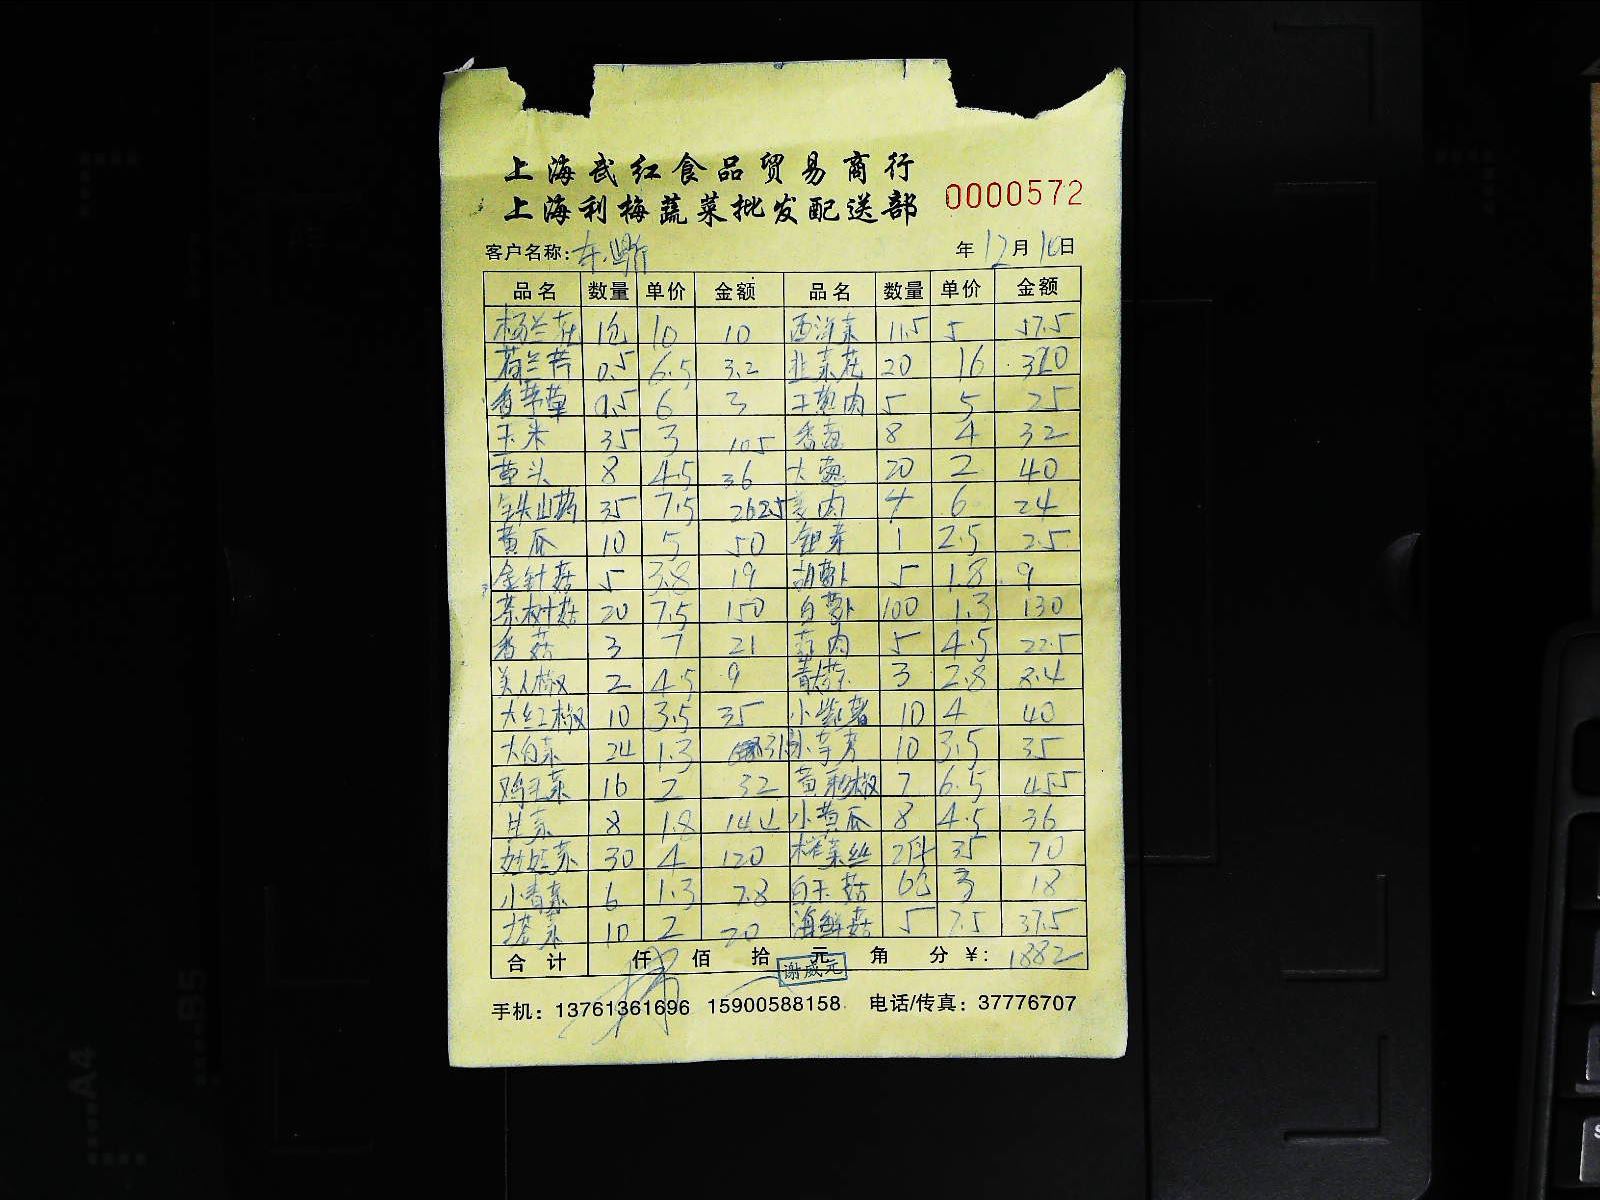 上海武红食品贸易商行
上海利梅蔬菜批发配送部
0000572
客户名称: 年 12月 10日
品名 数量 单价 金额 品名 数量 单价 金额
杨兰花 1包 10 10 西洋菜 11.5 5 57.5
荷兰芹 0.5 6.5 3.2 韭菜花 20 16 320
香茅草 0.5 6 3 干葱肉 5 5 25
玉米 35 3 105 香葱 8 4 32
草头 8 4.5 36 大葱 20 2 40
铁头山药 35 7.5 262.5 姜肉 4 6 24
黄瓜 10 5 50 银芽 1 2.5 2.5
金针菇 5 3.8 19 胡萝卜 5 1.8 9
茶树菇 20 7.5 150 白萝卜 100 1.3 130
香菇 3 7 21 蒜肉 5 4.5 22.5
美人椒 2 4.5 9 青 3 2.8 8.4
大红椒 10 3.5 35 小紫薯 10 4 40
大白菜 24 1.3 31 小芋艿 10 3.5 35
鸡毛菜 16 2 32 黄彩椒 7 6.5 45.5
生菜 8 1.8 14.4 小黄瓜 8 4.5 36
娃娃菜 30 4 120 榨菜丝 2 35 70
小青菜 6 1.3 7.8 白玉菇 6包 3 18
塔菜 10 2 20 海鲜菇 5 7.5 37.5
合计 仟 佰 拾 元 角 分 ¥: 1882
谢威元
手机: 13761361696 15900588158 电话/传真: 37776707
A4
B5